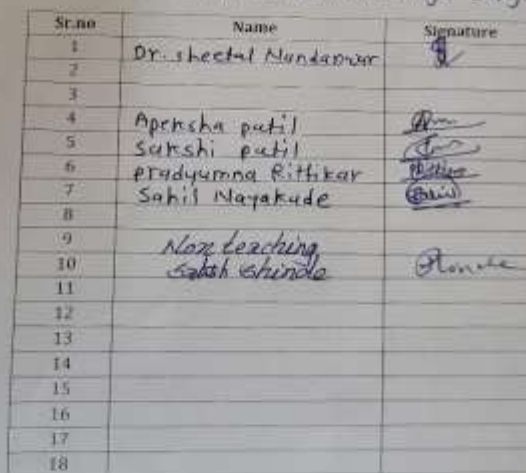 Sr.no Name Signature
1 Dr. sheetal Mundanwar
2
3
4 Apeksha patil
5 Sakshi patil
6 pradyumna Rittikar
7 Sahil Nayakude
8
9 Non teaching
10 Satish Shinde
11
12
13
14
15
16
17
18